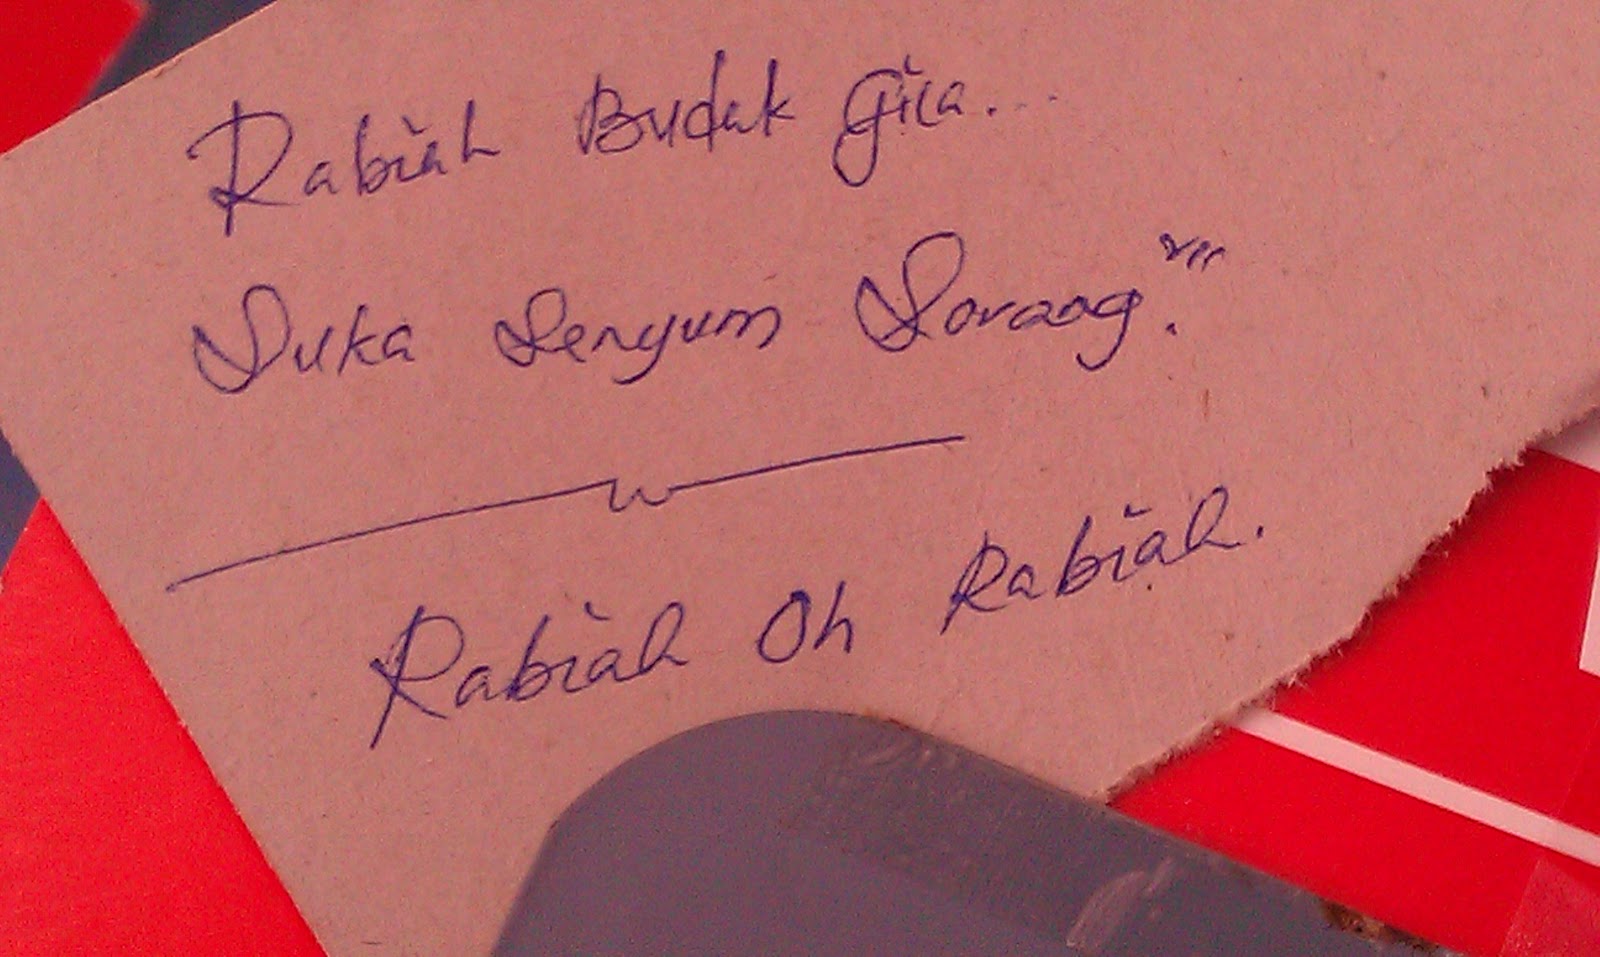 Rabiah Budak Gila...
Suka Senyum Soraag."
Rabiah Oh Rabiah.